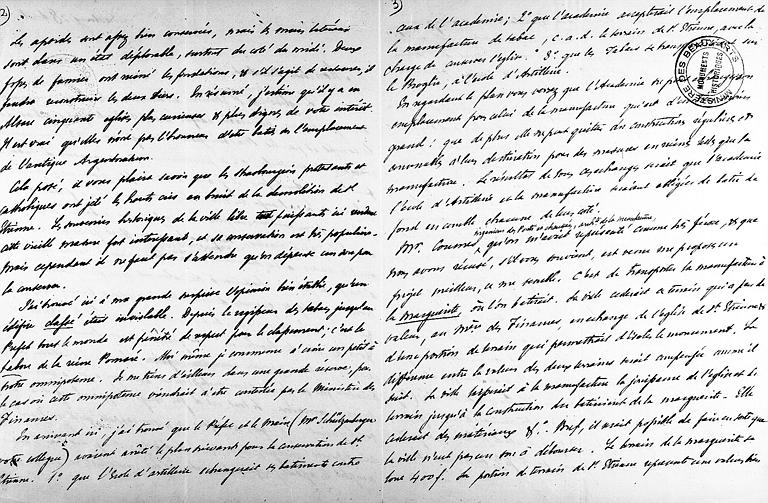 2)
les apsides sont assez bien conservées, mais les murs latéraux
sont dans un état déplorable, surtout du coté du midi. Deux
fosses de fumier ont miné les fondations, & s'il s'agit de restaurer, il
faudra reconstruire les deux tiers. En résumé, j'estime qu'il y a en
Alsace cinquante églises plus curieuses & plus dignes de votre intérêt
Il est vrai qu'elles n'ont pas l'honneur d'etre baties sur l'emplacement
de l'antique Argentoratum.
Cela posé, il vous plaira savoir que les Strasbourgeois protestants et
catholiques ont jeté les hauts cris au bruit de la démolition de St
Etienne. Les souvenirs historiques de la ville libre
cette vieille masure fort intéressante, et sa conservation est très populaire.
Mais cependant il ne faut pas s'attendre qu'on dépense un sou pour
la conserver.
J'ai trouvé ici à ma grande surprise l'opinion bien établie, qu'un
édifice classé étoit inviolable. Depuis le régisseur des tabacs jusqu'au
Préfet tout le monde est pénétré de respect pour le classement; c'est le
tabou de la reine Pomaré. Moi même je commence à croire un petit à
votre omnipotence. Je me tiens d'ailleurs dans une grande réserve, pour
le cas où cette omnipotence viendrait à être contestée par le Ministère des
Finances.
En arrivant ici j'ai trouvé que le Préfet et le Maire (Mr Schützenberger
votre collègue) avaient arrêté le plan suivant pour la conservation de St
Etienne. 1° que l'Ecole d'artillerie échangerait ses batiments contre
3)
ceux de l'académie; 2° que l'académie accepterait l'emplacement de
la manufacture de tabac, c.a.d. le terrain de St Etienne, avec la
charge de conserver l'église. 3° que les Tabacs se transporteraient sur
le Broglie, à l'école d'Artillerie.
En regardant le plan vous verrez que l'Académie
emplacement pour celui de la manufacture qui est
grand: que de plus elle ne peut quitter des constructions régulières et
convenables à leur destination pour des masures en ruines telles que la
manufacture. Le résultat de tous ces échanges serait que l'académie
l'école d'Artillerie et la manufacture seraient obligées de batir de
fond en comble chacune de leur coté.
Mr. Coumes, ingénieur des Ponts et chaussées, qu'on m'avait représenté comme très féroce, & que
nous avons récusé, s'il vous souvient, est venu me proposer un
projet meilleur, ce me semble. C'est de transporter la manufacture à
la Marguerite, où l'on batirait. La ville céderait ce terrain qui a peu de
valeur, au Mère des Finances, en échange de l'église de St Etienne &
d'une portion de terrain qui permettrait d'isoler le monument. La
différence entre la valeur des deux terrains serait employée comme il
suit. La ville laisserait à la manufacture la jouissance de l'église et du
terrain jusqu'à la construction des batiments de la marguerite. Elle
cederait des matériaux &c. Bref, il serait possible de faire en sorte que
la ville n'eut pas un sou à débourser. Le terrain de la marguerite
vaut 400f. La portion de terrain de St Etienne représente une valeur
MINISTÈRE DES BEAUX-ARTS
MONUMENTS HISTORIQUES